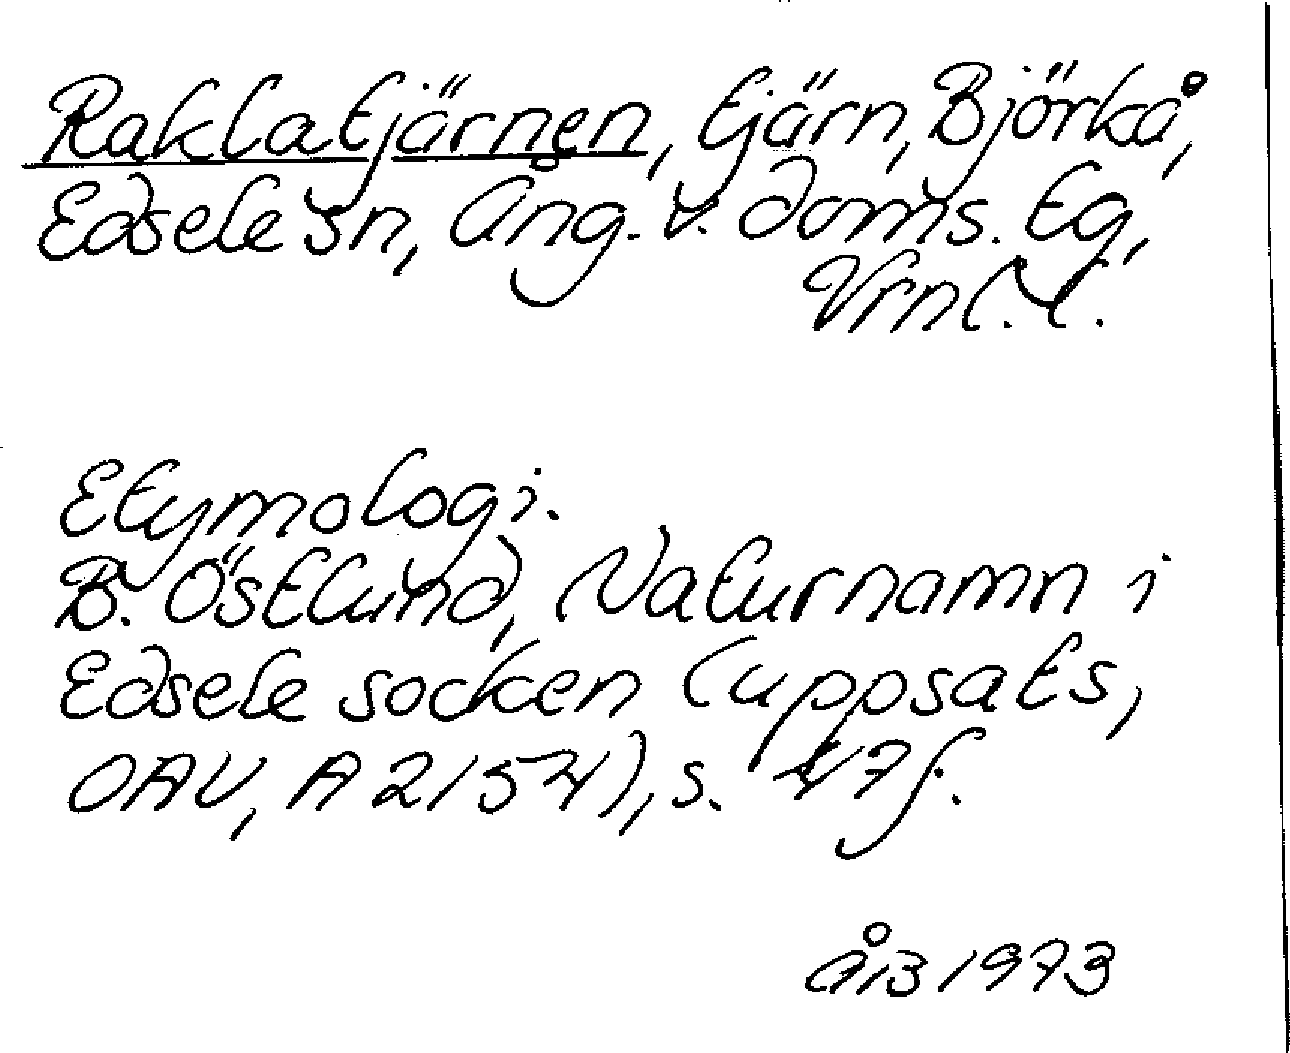 Raklatjärnen, tjärn, Björkå,
Edsele sn, Ång. v. doms. tg,
Vrnl. l.
Etymologi.
B. Östlund, Naturnamn i
Edsele socken (uppsats,
OAU, A 2154), s. 47 f.
ÅB 1973